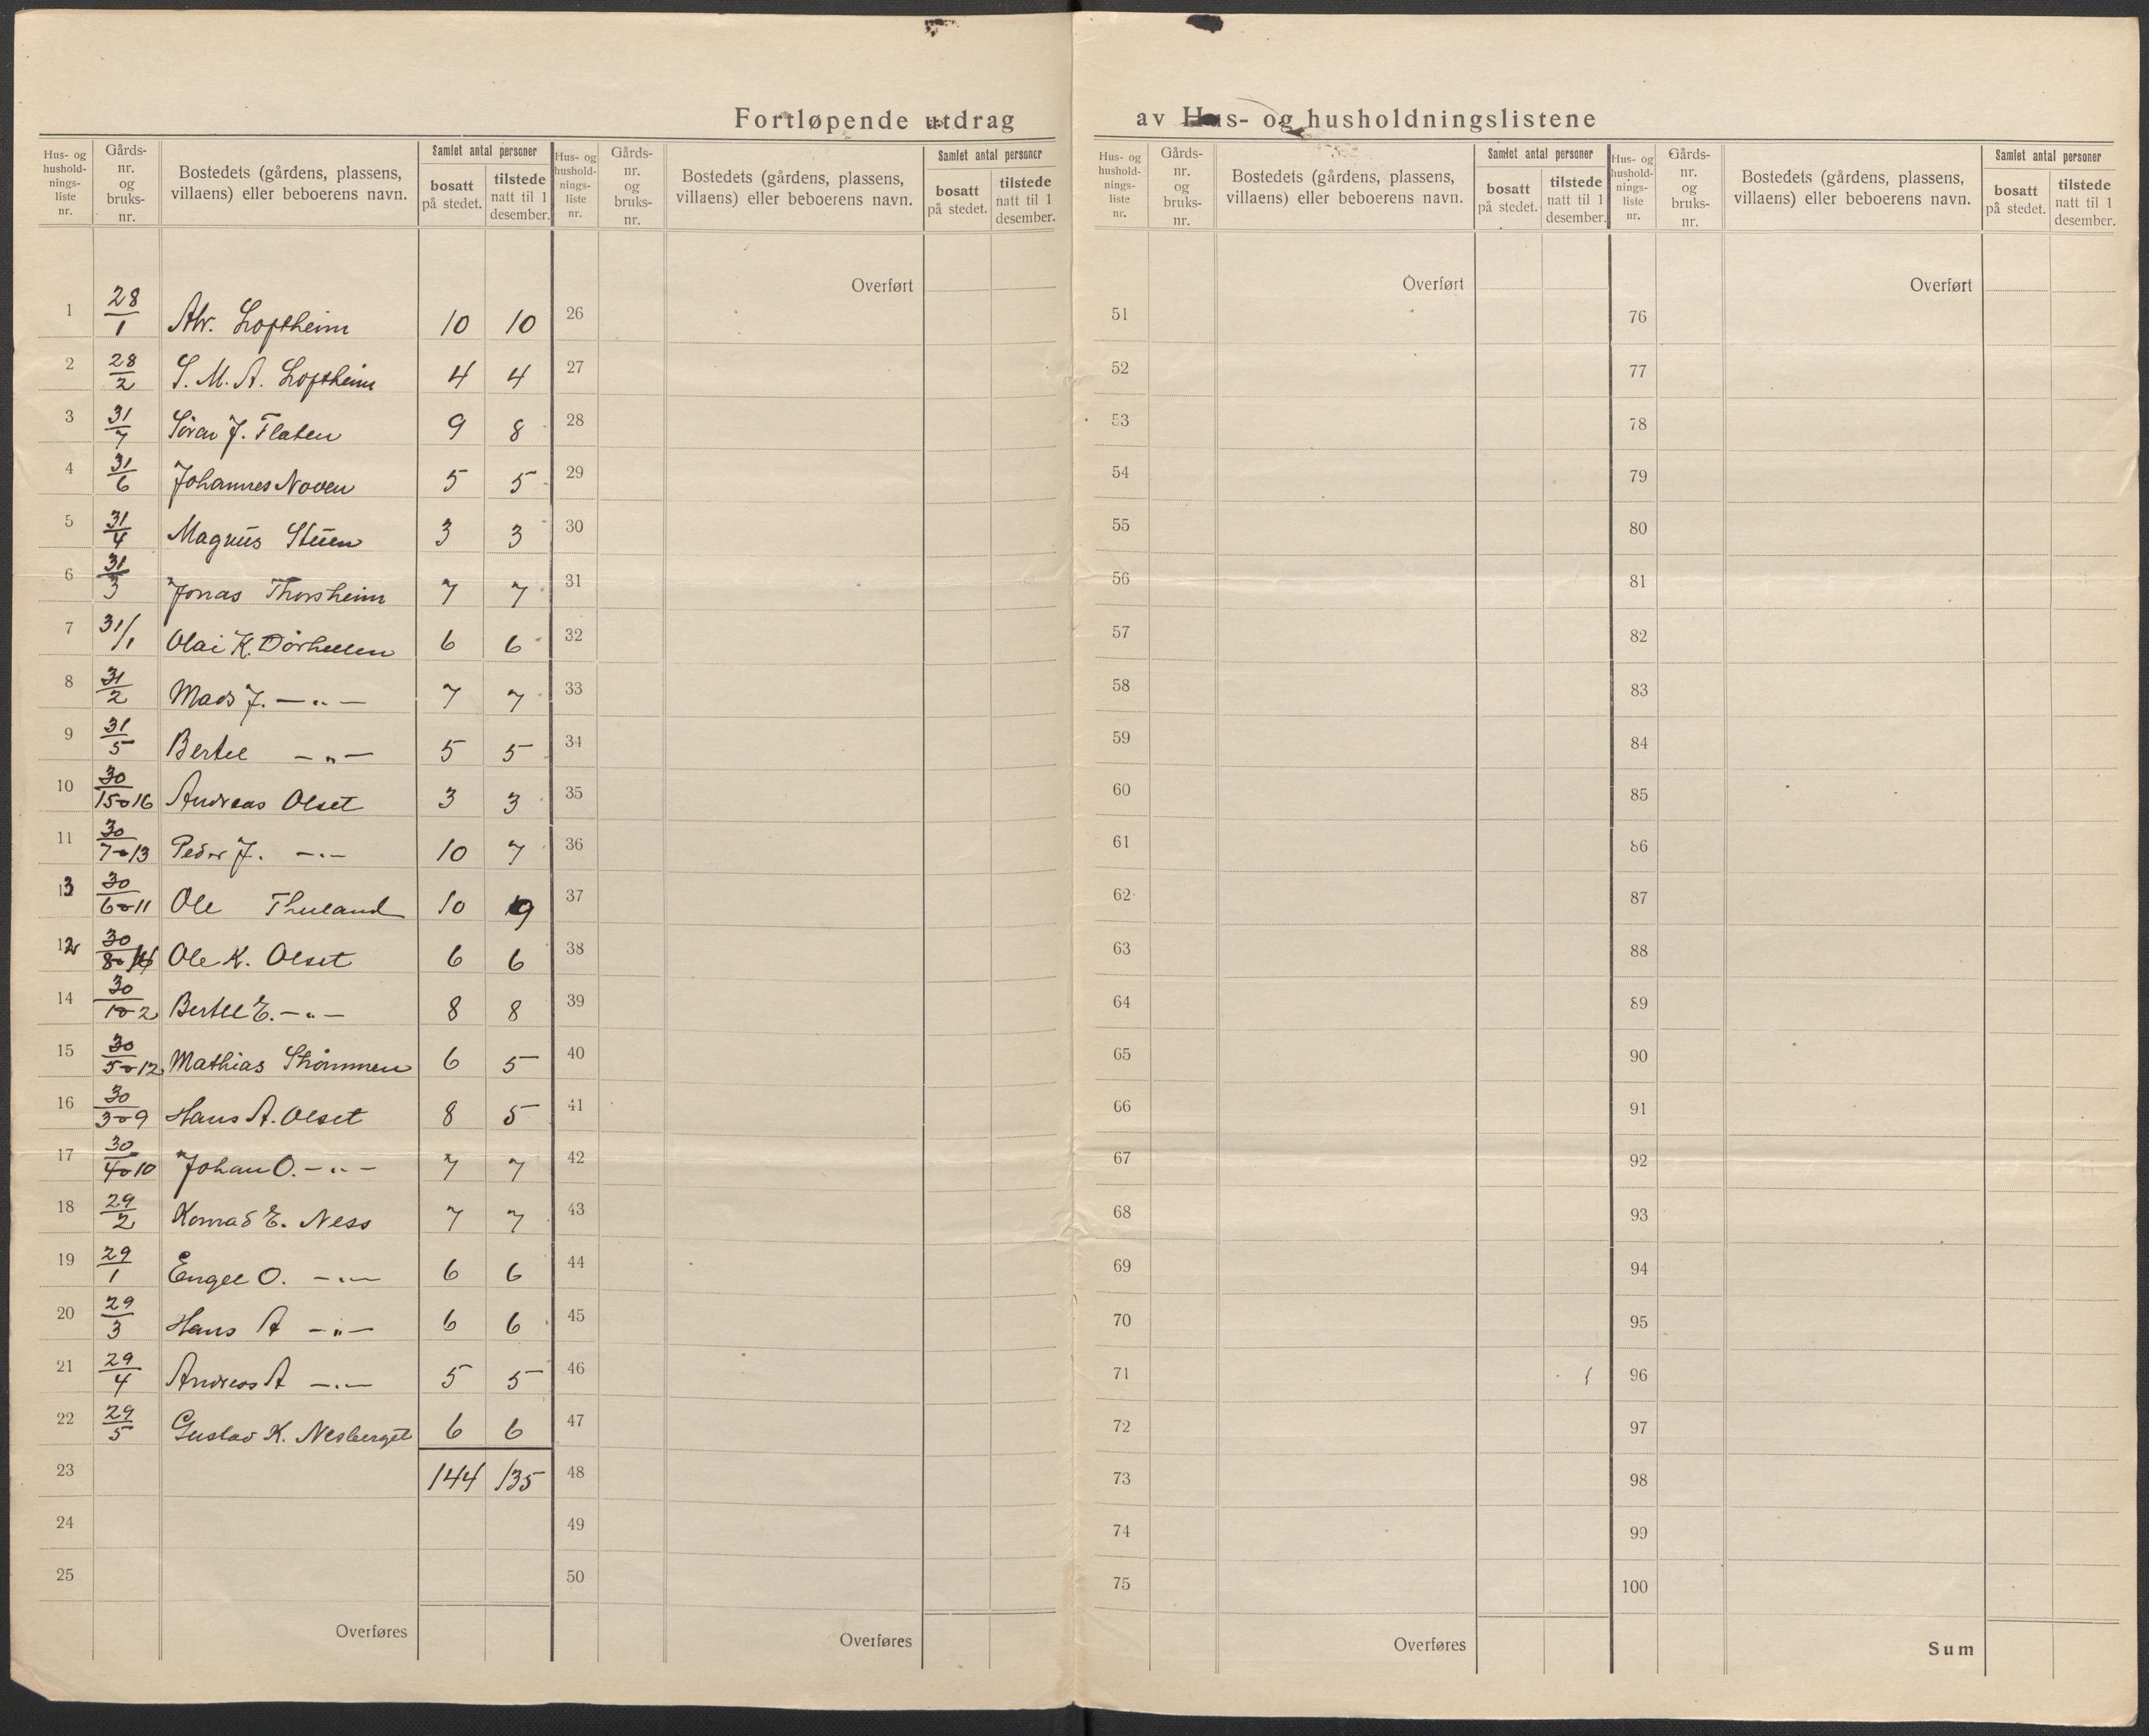 Fortløpende utdrag av Hus- og husholdningslistene
Hus- og hushold-nings-liste nr. | Gårds-nr. og bruks-nr. | Bostedets (gårdens, plassens, villaens) eller beboerens navn. | Samlet antal personer | bosatt på stedet. | tilstede natt til 1 desember.
Hus- og hushold-nings-liste nr. | Gårds-nr. og bruks-nr. | Bostedets (gårdens, plassens, villaens) eller beboerens navn. | Samlet antal personer | bosatt på stedet. | tilstede natt til 1 desember.
Hus- og hushold-nings-liste nr. | Gårds-nr. og bruks-nr. | Bostedets (gårdens, plassens, villaens) eller beboerens navn. | Samlet antal personer | bosatt på stedet. | tilstede natt til 1 desember.
Hus- og hushold-nings-liste nr. | Gårds-nr. og bruks-nr. | Bostedets (gårdens, plassens, villaens) eller beboerens navn. | Samlet antal personer | bosatt på stedet. | tilstede natt til 1 desember.
1 28/1 Alv. Loftheim 10 10
2 28/2 S. M. A. Loftheim 4 4
3 31/7 Søren J. Flaten 9 8
4 31/6 Johannes Noven 5 5
5 31/4 Magnus Stuen 3 3
6 31/3 Jonas Thorsheim 7 7
7 31/1 Olai K. Dørhellen 6 6
8 31/2 Mads J. — „ — 7 7
9 31/5 Bertel — „ — 5 5
10 30/15 o 16 Andreas Olset 3 3
11 30/7 o 13 Peder J. — „ — 10 7
13 30/6 o 11 Ole Thuland 10 9
12 30/8 o 14 Ole K. Olset 6 6
14 30/1 o 2 Bertel E. — „ — 8 8
15 30/5 o 12 Mathias Strømmen 6 5
16 30/3 o 9 Hans A. Olset 8 5
17 30/4 o 10 Johan O. — „ — 7 7
18 29/2 Konrad E. Ness 7 7
19 29/1 Engel O. — „ — 6 6
20 29/3 Hans A — „ — 6 6
21 29/4 Andreas A — „ — 5 5
22 29/5 Gustav K. Nesberget 6 6
23 144 135
24
25
Overføres
Overført
26
27
28
29
30
31
32
33
34
35
36
37
38
39
40
41
42
43
44
45
46
47
48
49
50
Overføres
Overført
51
52
53
54
55
56
57
58
59
60
61
62
63
64
65
66
67
68
69
70
71
72
73
74
75
Overføres
Overført
76
77
78
79
80
81
82
83
84
85
86
87
88
89
90
91
92
93
94
95
96
97
98
99
100
Sum